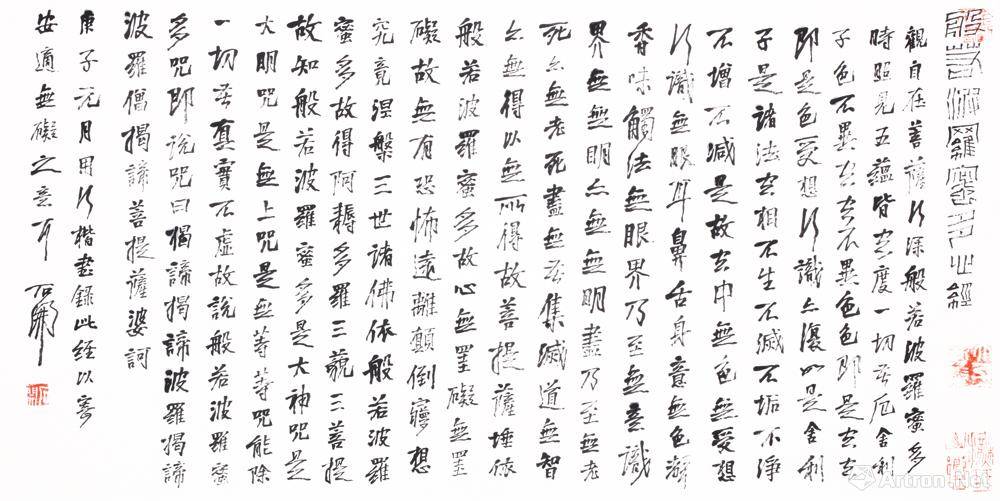 般若波羅蜜多心經
觀自在菩薩行深般若波羅蜜多
時照見五蘊皆空度一切苦厄舍利
子色不異空空不異色色即是空空
即是色受想行識亦復如是舍利
子是諸法空相不生不滅不垢不淨
不增不減是故空中無色無受想
行識無眼耳鼻舌身意無色聲
香味觸法無眼界乃至無意識
界無無明亦無無明盡乃至無老
死亦無老死盡無苦集滅道無智
亦無得以無所得故菩提薩埵依
般若波羅蜜多故心無罣礙無罣
礙故無有恐怖遠離顛倒夢想
究竟涅槃三世諸佛依般若波羅
蜜多故得阿耨多羅三藐三菩提
故知般若波羅蜜多是大神咒是
大明咒是無上咒是無等等咒能除
一切苦真實不虛故說般若波羅蜜
多咒即說咒曰揭諦揭諦波羅揭諦
波羅僧揭諦菩提薩婆訶
庚子元月用行楷書錄此經以寄
安適無礙之意耳
Artron.Net